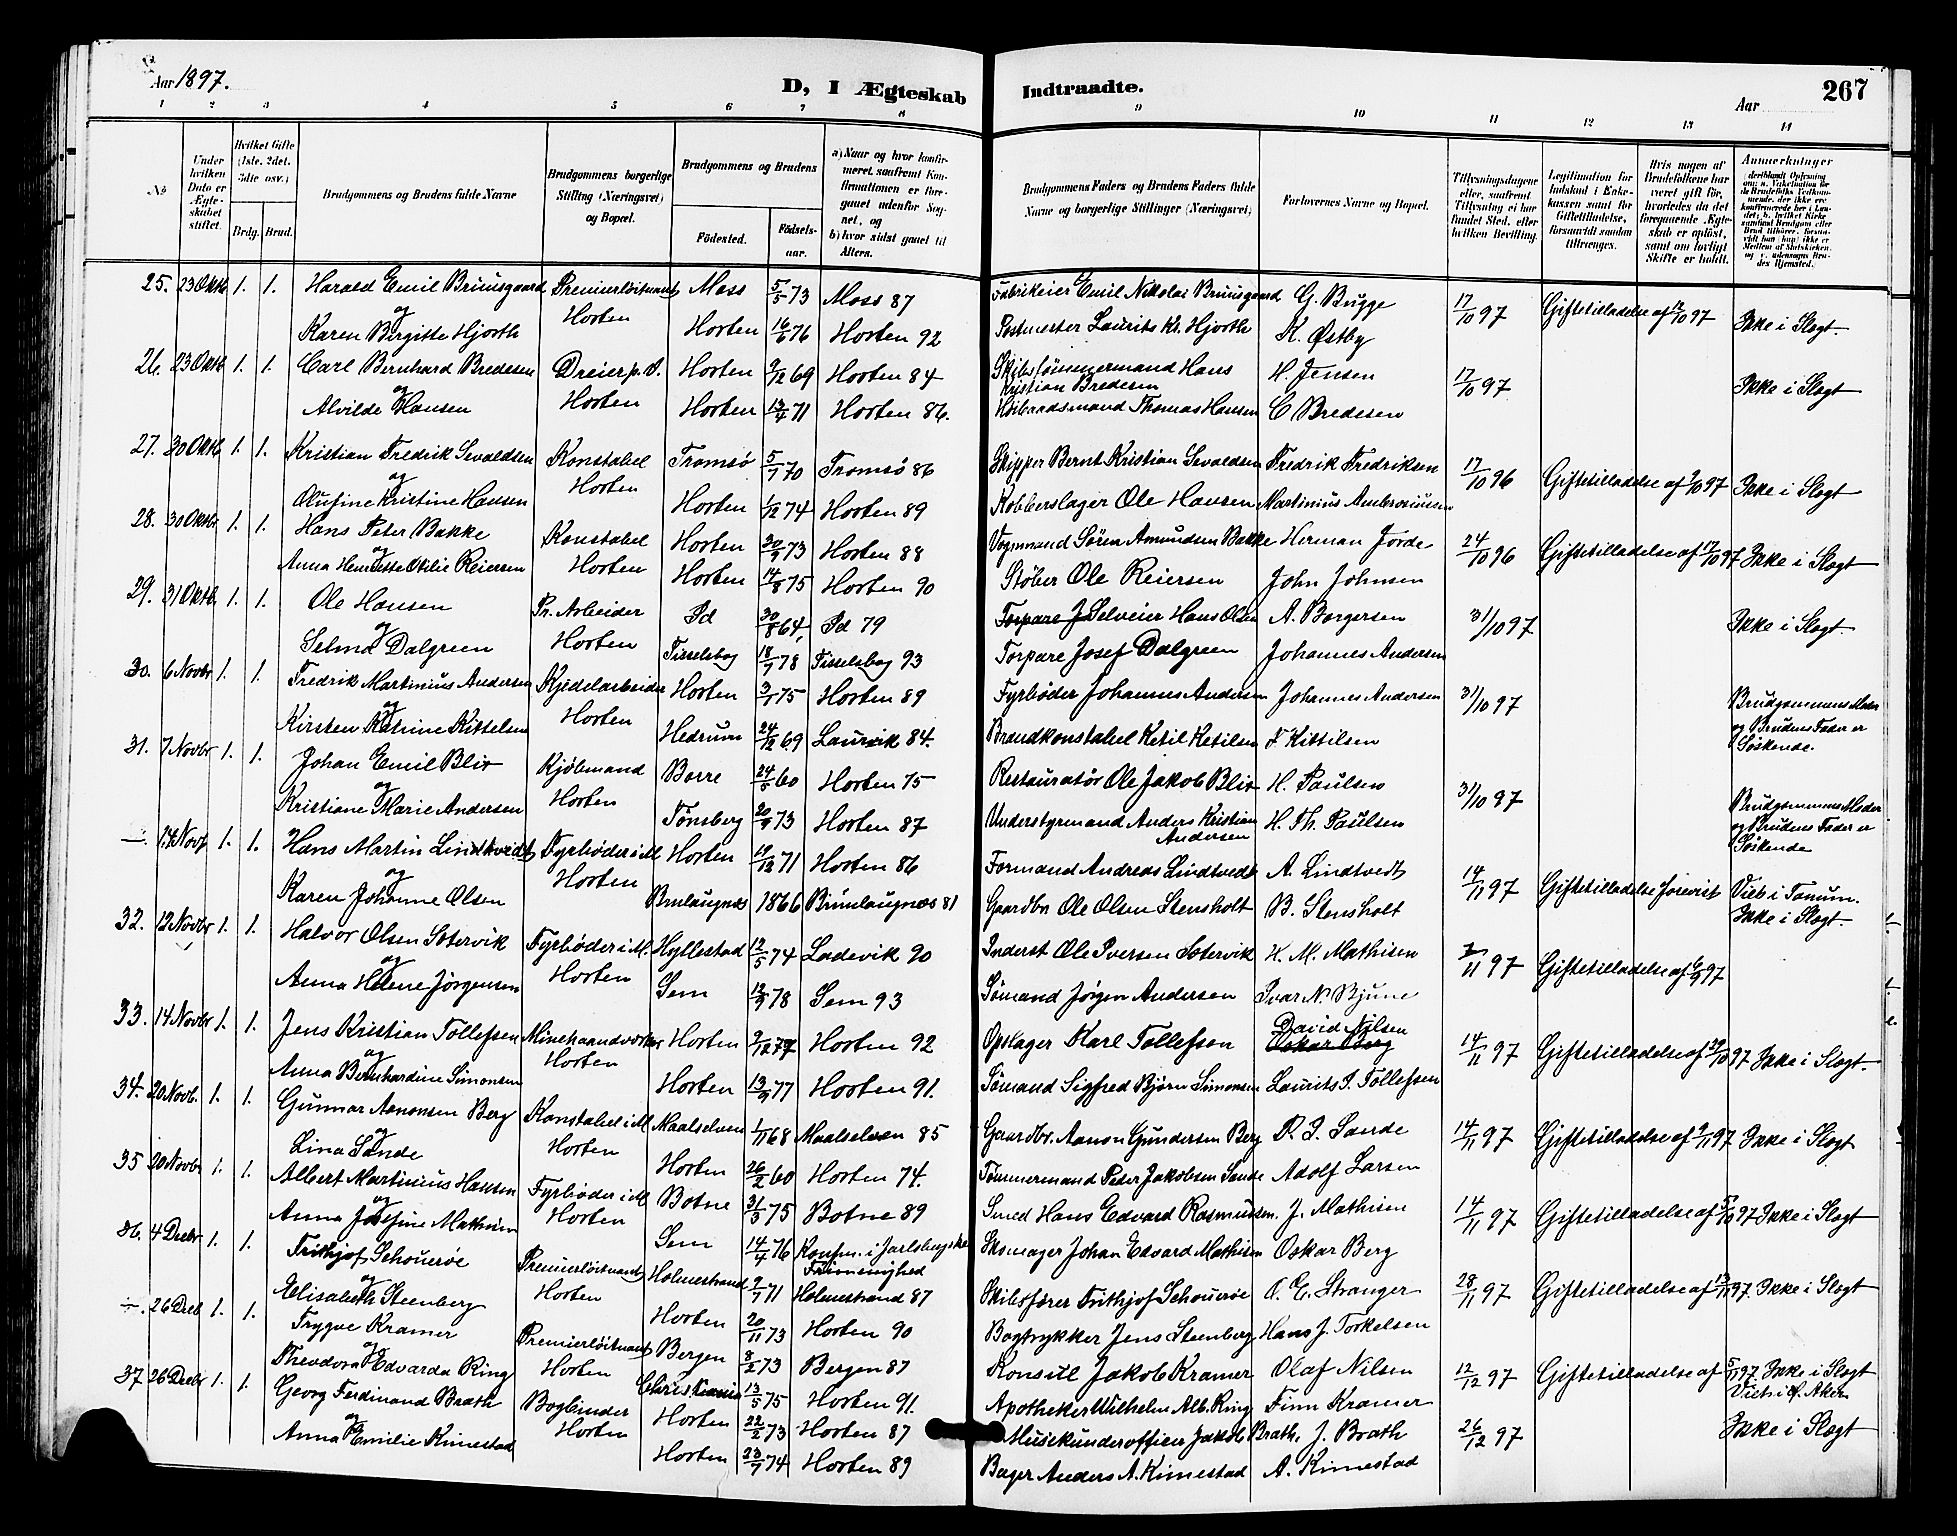 Aar 1897.
D, I Ægteskab Indtraadte.
Aar
267
1 2 3 4 5 6 7 8 9 10 11 12 13 14
No
Under hvilken Dato er Ægteskabet stiftet.
Hvilket Gifte (1ste, 2det, 3die osv.)
Brdg. Brud.
Brudgommens og Brudens fulde Navne
Brudgommens borgerlige Stilling (Næringsvei) og Bopæl.
Brudgommens og Brudens
Fødested.
Fødselsaar.
a) Naar og hvor konfirmeret, saafremt Konfirmationen er foregaaet udenfor Sognet, og
b) hvor sidst gaaet til Alters.
Brudgommens Faders og Brudens Faders fulde Navne og borgerlige Stillinger (Næringsvei)
Forlovernes Navne og Bopæl.
Tillysningsdagene eller, saafremt Tillysning ei har fundet Sted, efter hvilken Bevilling.
Legitimation for Indskud i Enkekassen samt for Giftetilladelse, forsaavidt saadan tiltrænges.
Hvis nogen af Brudefolkene har været gift før, hvorledes da det foregaaende Ægteskab er opløst, samt om lovligt Skifte er holdt.
Anmerkninger
25. 23 Oktb 1. 1. Harald Emil Bruusgaard Premierløitnant Moss 5/5 73 Moss 87 Fabrikeier Emil Nikolai Bruusgaard G. Bugge 17/10 97 Giftetilladelse af 12/10 97 Ikke i Slægt.
og Horten
Karen Birgitte Hjorth Horten 16/6 76 Horten 92 Postmester Laurits Kr. Hjorth K. Østby
26. 23 Oktb 1. 1. Carl Bernhard Bredesen Dreier p. V. Horten 9/12 69 Horten 84 Skibstømmermand Hans Kristian Bredesen H. Jensen 17/10 97 Ikke i Slægt
og Horten
Alvilde Hansen Horten 13/4 71 Horten 86. Høibaadsmand Thomas Hansen C. Bredesen
27. 30 Oktb 1. 1. Kristian Fredrik Sevaldsen Konstabel Tromsø 5/7 70 Tromsø 86 Skipper Bernt Kristian Sevaldsen Fredrik Fredriksen 17/10 96 Giftetilladelse af 9/10 97 Ikke i Slægt
og Horten
Olufine Kristine Hansen Horten 1/12 74 Horten 89 Kobberslager Ole Hansen Martinius Ambrosiussen
28. 30 Oktbr 1. 1. Hans Peter Bakke Konstabel Horten 30/9 73 Horten 88 Vognmand Søren Amundsen Bakke Herman Jorde 24/10 96 Giftetilladelse af 17/10 97 Ikke i Slægt
og Horten
Anna Henriette Otilie Reiersen Horten 14/8 75 Horten 90 Støber Ole Reiersen John Johnsen
29. 31 Oktb. 1. 1. Ole Hansen Pr. Arbeider Id 30/8 64, Id 79 Torpare J Selveier Hans Olsen A. Borgersen 31/10 97 Ikke i Slægt.
og Horten
Selma Dalgreen Tisselsbog 18/7 78 Tisselsbog 93 Torpare Josef Dalgreen Johannes Andersen
30. 6 Novbr 1. 1. Fredrik Martinius Andersen Kjedelarbeider Horten 3/1 75 Horten 89 Fyrbøder Johannes Andersen Johannes Andersen 31/10 97 Brudgommens Moder og Brudens Fader er Søskende.
og Horten
Kirsten Katrine Kittelsen Hedrum 24/12 69 Laurvik 84. Brandkonstabel Ketil Ketilsen F Kittilsen
31. 7 Novbr 1. 1. Johan Emil Blix Kjøbmand Borre 24/5 60 Horten 75 Restauratør Ole Jakob Blix H. Paulsen 31/10 97 Brudgommens Moder og Brudens Fader er Søskende
og Horten
Kristiane Marie Andersen Tønsberg 20/9 73 Horten 87 Understyrmand Anders Kristian Andersen H. Th. Paulsen
—. 14 Nov 1. 1. Hans Martin Lindtvedt Fyrbøder i M Horten 19/12 71 Horten 86 Formand Andreas Lindtvedt A. Lindtvedt 14/11 97 Giftetilladelse forevist Viet i Tanum.
og Horten Ikke i Slægt.
Karen Johanne Olsen Brulaugnæs 1866 Brunlaugnæs 81 Gaardbr Ole Olsen Stensholt B. Stensholt
32. 12 Novbr 1. 1. Halvor Olsen Sætervik Fyrbøder i M. Hyllestad 12/5 74 Ladevik 90 Inderst Ole Iversen Sætervik K. M. Mathisen 7/11 97 Giftetilladelse af 6/9 97
og Horten
Anna Helene Jørgensen Sem 12/9 78 Sem 93 Sømand Jørgen Andersen Ivar N. Bjune
33. 14 Novbr 1. 1. Jens Kristian Tollefsen Minehaandverker Horten 9/12 77 Horten 92 Opslager Karl Tollefsen David Nilsen 14/11 97 Giftetilladelse af 29/10 97 Ikke i Slægt.
og Horten Oskar Berg
Anna Bernhardine Simonsen Horten 13/9 77 Horten 91. Sømand Sigfred Bjørn Simonsen Laurits P. Tollefsen
34. 20 Novb. 1. 1. Gunnar Aanonsen Berg Konstabel i M Maalselven 1/11 68 Maalselven 85 Gaardbr. Aanon Gundersen Berg P. J. Sande 14/11 97 Giftetilladelse af 9/11 97 Ikke i Slægt
og Horten
Lina Sande Horten 26/2 60 Horten 74. Tømmermand Peder Jakobsen Sande Adolf Larsen
35 20 Novbr 1. 1. Albert Martinius Hansen Fyrbøder i M Botne 31/3 75 Botne 89 Smed Hans Edvard Rasmussen. J. Mathisen 14/11 97 Giftetilladelse af 5/10 97 Ikke i Slægt
og Horten
Anna Josefine Mathisen Sem 14/4 76 Konfirm. i Jarlsbergske Frimenighed Skomager Johan Edvard Mathisen Oskar Berg
36. 4 Decbr 1. 1. Frithjof Schouerøe Premierløitnant Holmestrand 9/7 71 Holmestrand 87 Skibsfører Frithjof Schouerøe O. E. Stranger 28/11 97 Giftetilladelse af 13/11 97. Ikke i Slægt
og Horten
Elisabeth Steenberg Horten 20/11 73 Horten 90 Bogtrykker Jens Steenberg Hans J. Torkelsen
—. 26 Decb 1. 1. Trygve Kramer Premierløitnant Bergen 8/2 73 Bergen 87 Konsul Jakob Kramer Olaf Nilsen 12/12 97 Giftetilladelse af 5/11 97. Ikke i Slægt
og Horten Viet i V. Aker
Theodora Edvarda Ring Christiania 13/5 75 Horten 91. Apotheker Wilhelm Alb. Ring Finn Kramer
37 26 Decbr 1. 1. Georg Ferdinand Brath Bogbinder Horten 22/2 73 Horten 87 Musikunderofficer Jakob Brath. J. Brath 26/12 97 Ikke i Slægt
og Horten
Anna Emilie Kimestad Horten 23/7 74 Horten 89 Bager Anders A. Kimestad A. Kimestad